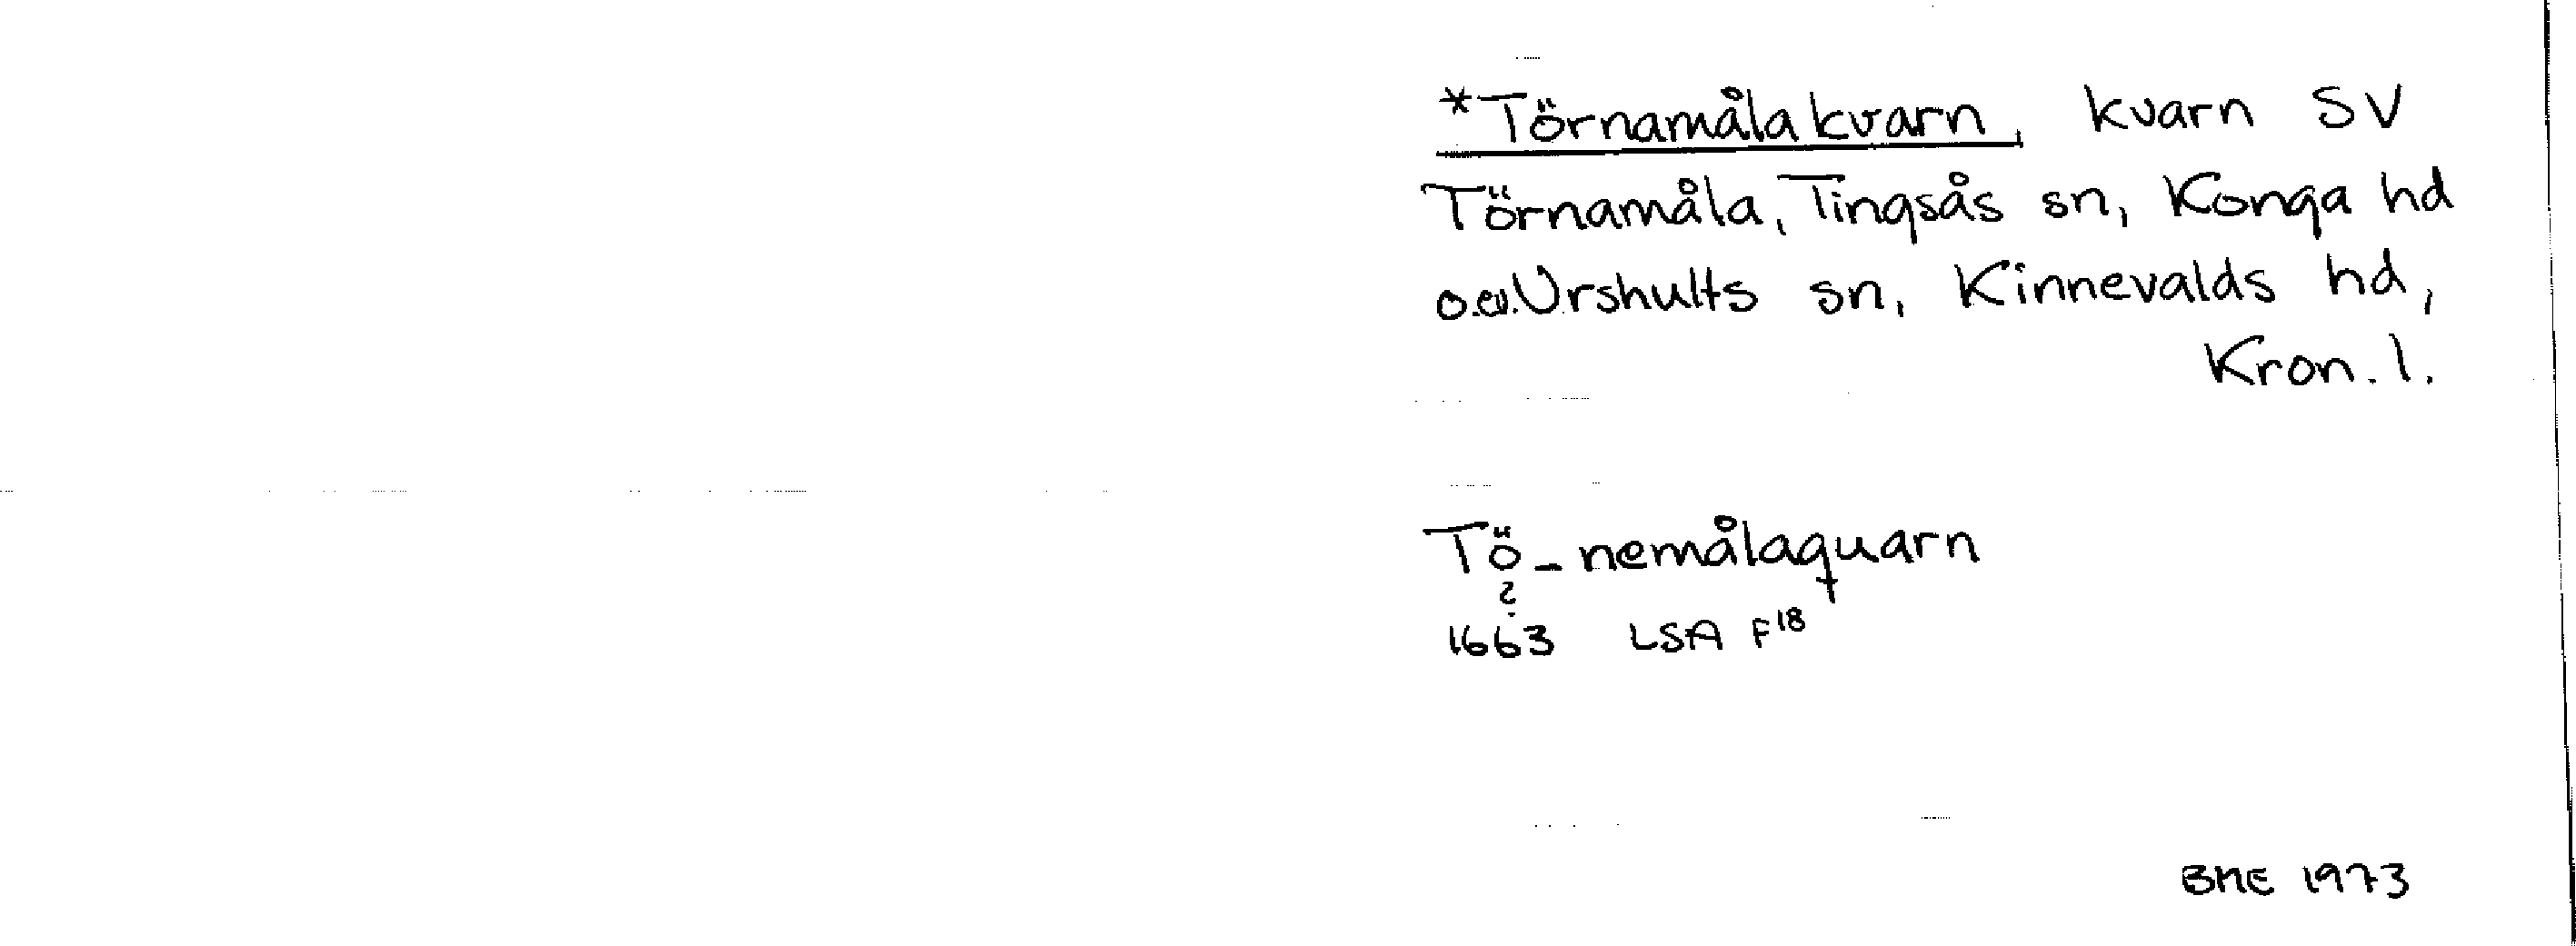 *Törnamålakvarn, kvarn SV
Törnamåla, Tingsås sn, Konga hd
o.ev.Urshults sn, Kinnevalds hd,
Kron.l.
Tö_nemålaquarn
?
1663 LSA F18
BME 1973